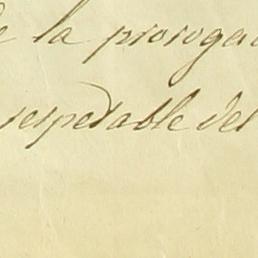 de la prorogac
respetable del